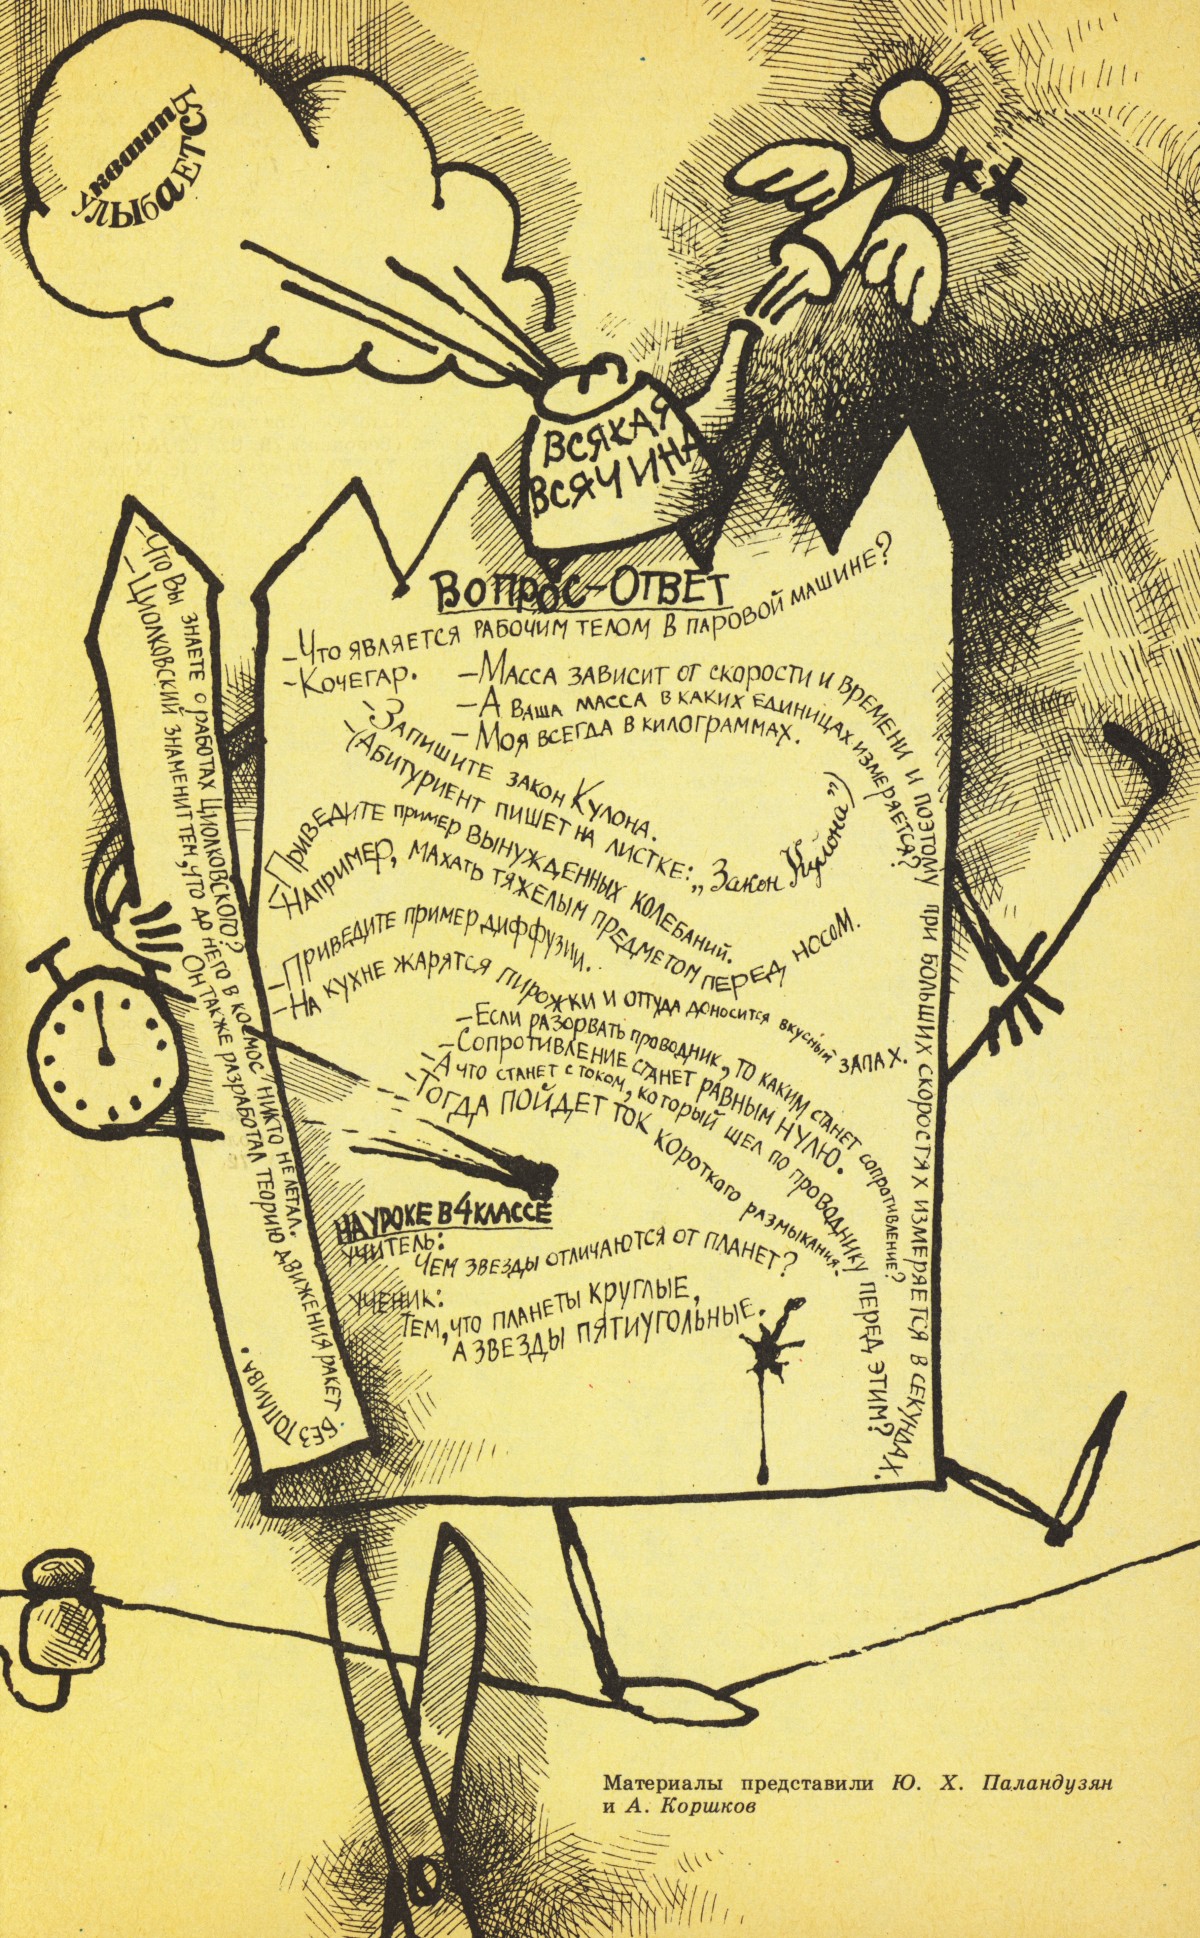 квант
УЛЫбАЕТСЯ
ВСЯКАЯ
ВСЯЧИНА
ВОПРОС-ОТВЕТ
-Что является рабочим телом в паровой машине?
-Кочегар.
-Масса зависит от скорости и времени и поэтому при больших скоростях измеряется в секундах.
-А ваша масса в каких единицах измеряется?
-Моя всегда в килограммах.
-Запишите закон Кулона.
-(Абитуриент пишет на листке: „Закон Кулона")
-Приведите пример вынужденных колебаний.
-Например, махать тяжелым предметом перед носом.
-Приведите пример диффузии.
-На кухне жарятся пирожки и оттуда доносится вкусный запах.
-Если разорвать проводник, то каким станет сопротивление?
-Сопротивление станет равным нулю.
-А что станет с током, который шел по проводнику перед этим?
-Тогда пойдет ток короткого размыкания.
-Что Вы знаете о работах Циолковского?
-Циолковский знаменит тем, что до него в космос никто не летал.
Он также разработал теорию движения ракет без топлива.
НА УРОКЕ В 4 КЛАССЕ
УЧИТЕЛЬ:
Чем звезды отличаются от планет?
УЧЕНИК:
Тем, что планеты круглые,
а звезды пятиугольные.
Материалы представили Ю. Х. Паландузян
и А. Коршков